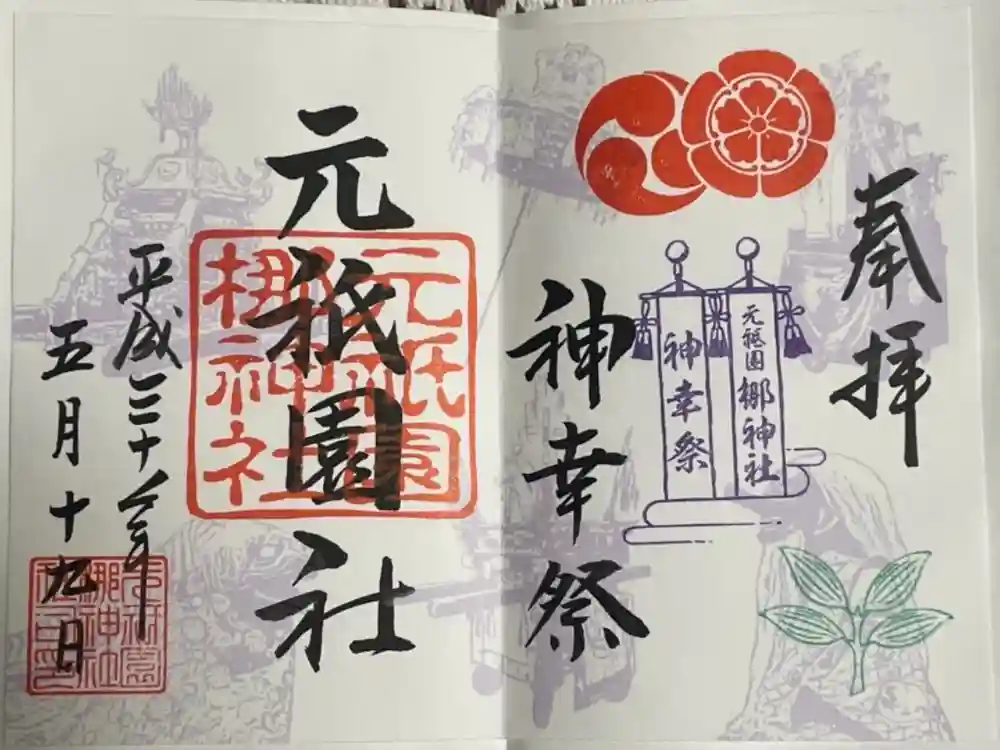 奉拝
元祇園梛神社
神幸祭
神幸祭
元祇園社
元祇園
梛神社
平成三十年
五月十九日
元祇園
梛神社